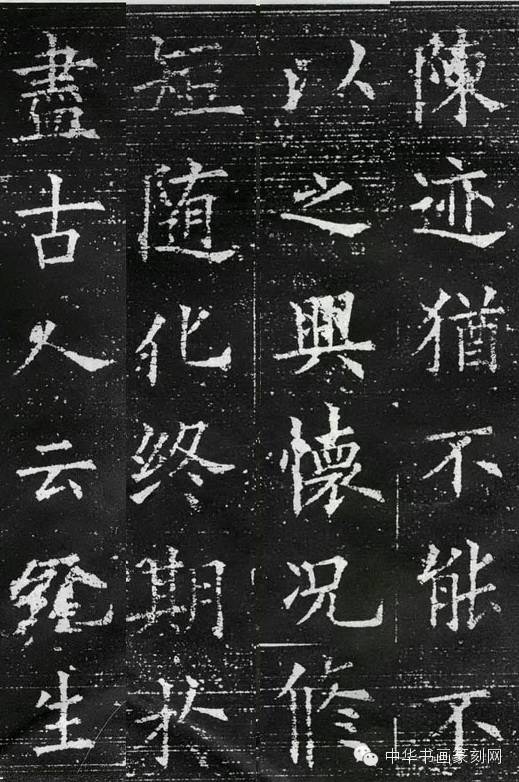 陳迹猶不能不
以之興懷况修
短随化终期扵
盡古人云生
中华书画篆刻网